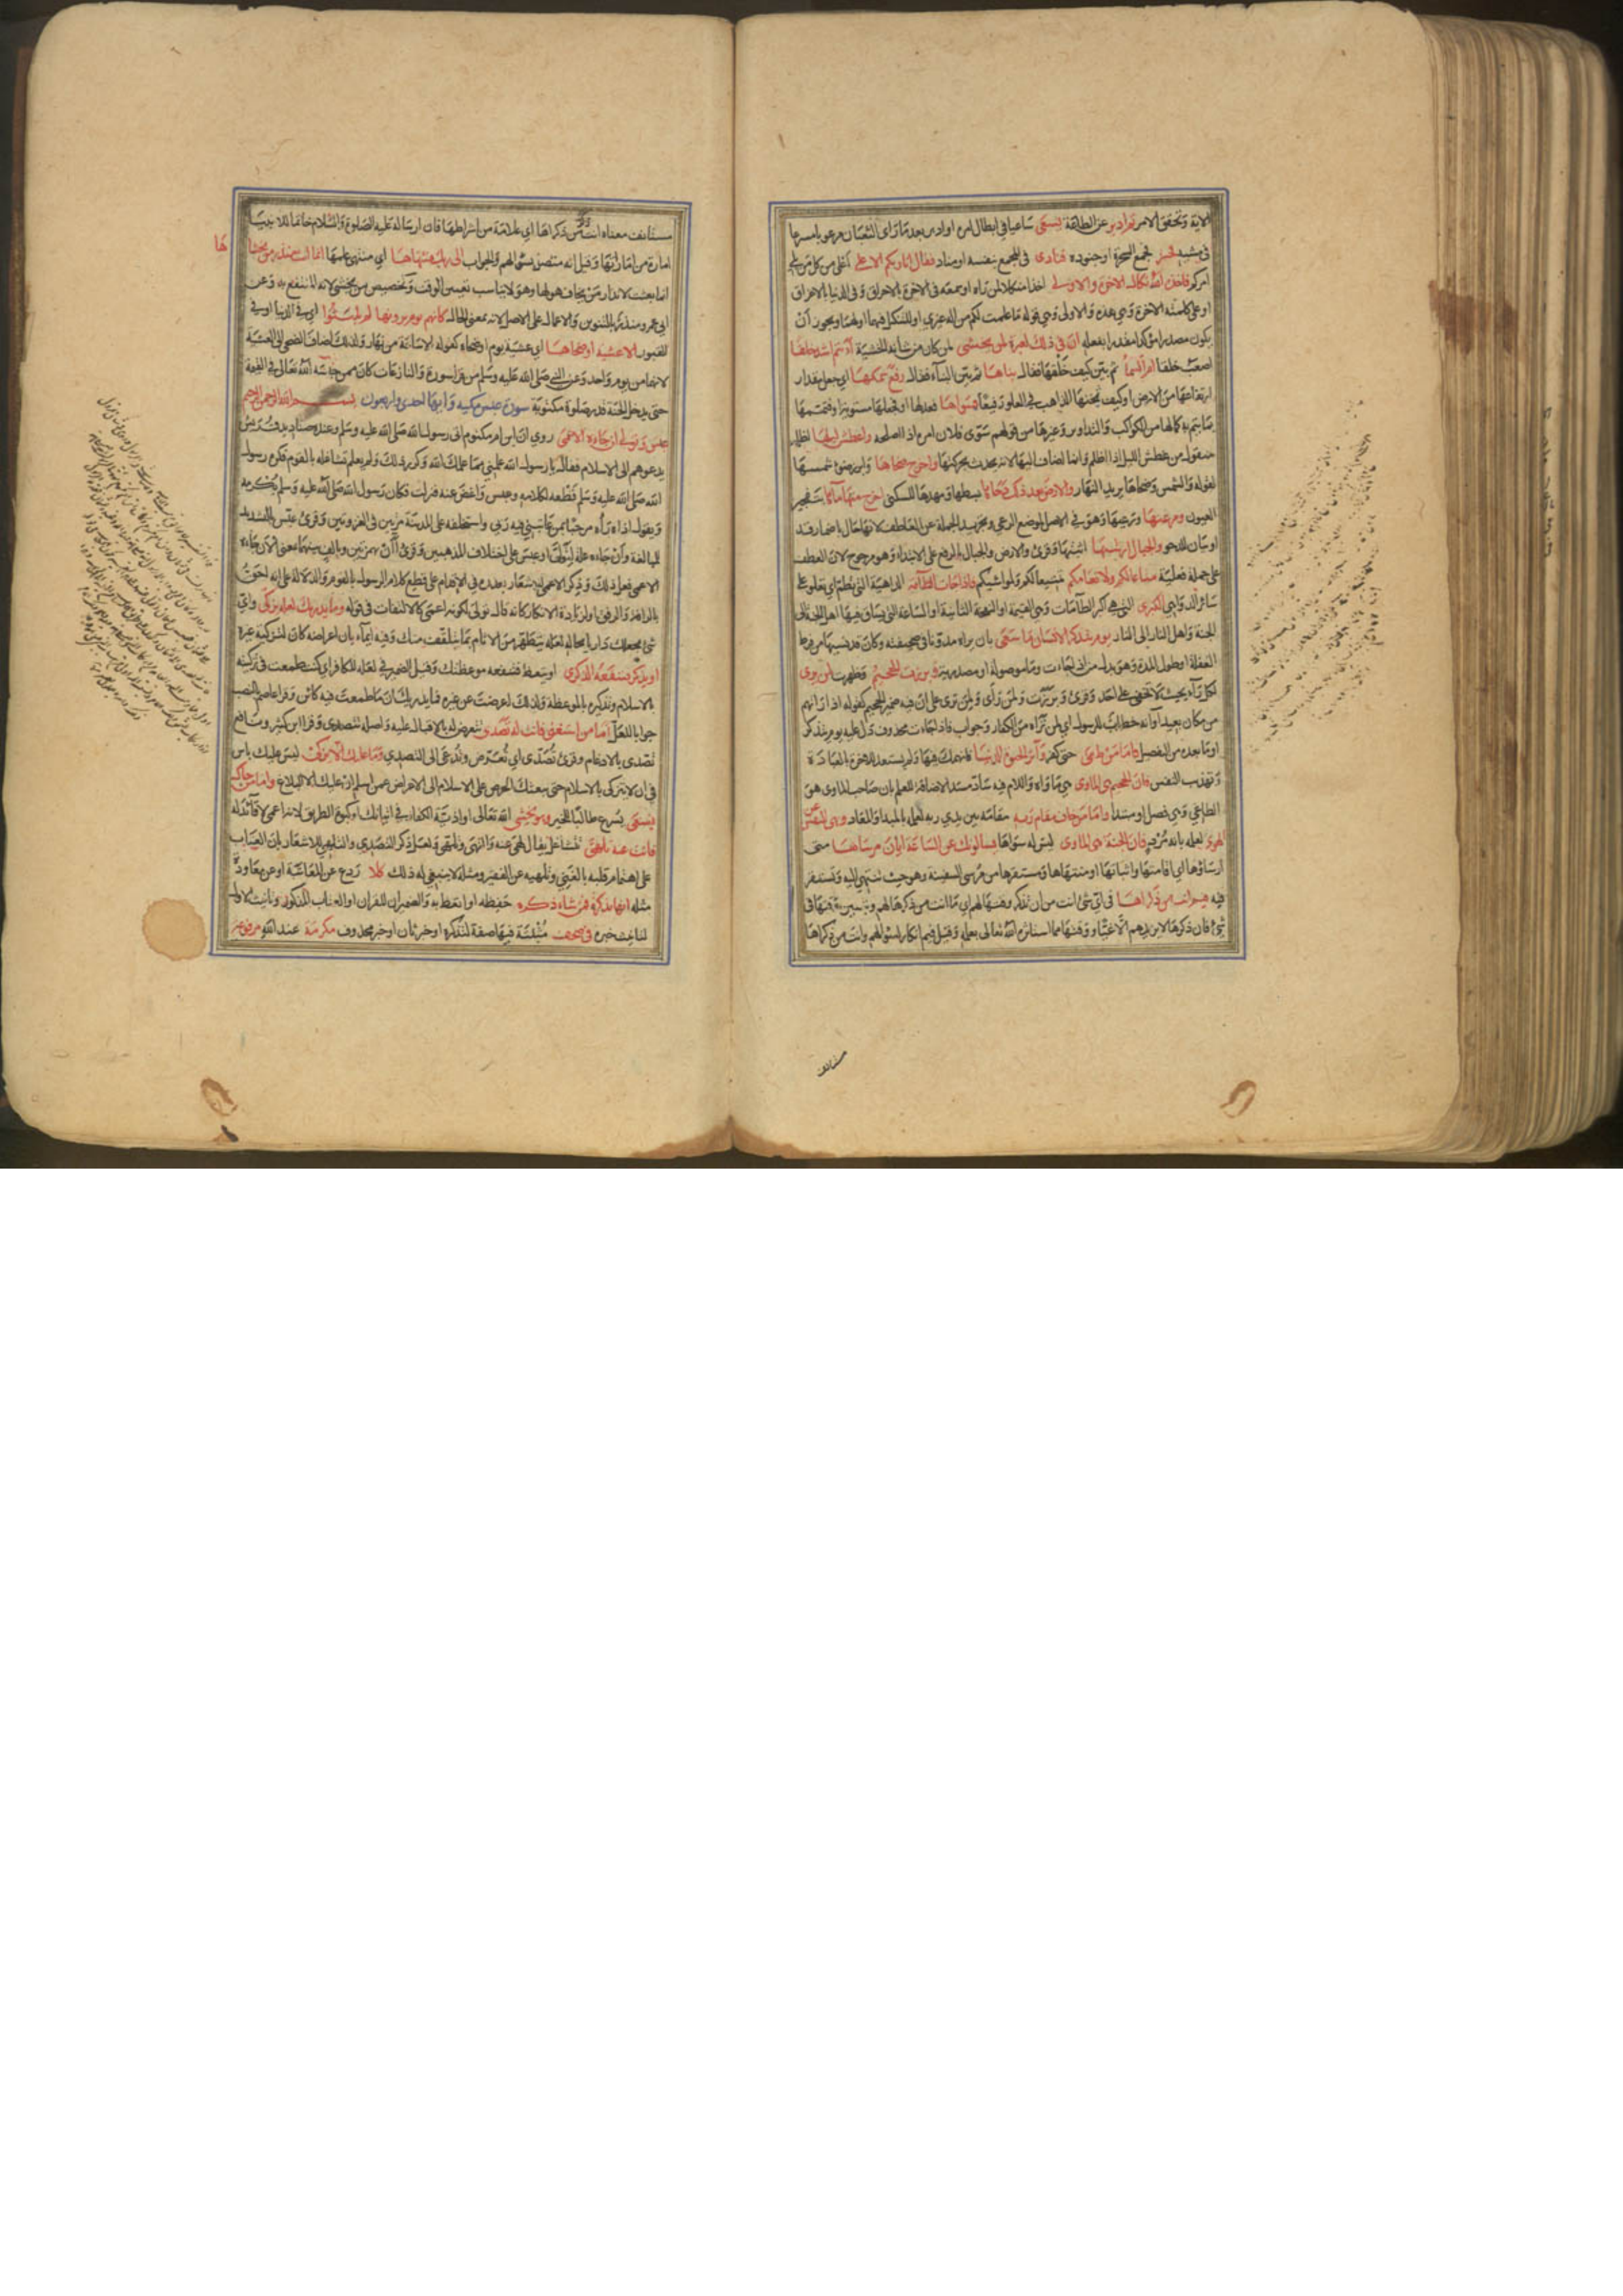 الاية وتحقق الامر ثم ادبر عن الطاعة يسعى ساعيا في ابطال امره او ادبر بعد ما راى الثعبان مرعوبا مسرعا
في مشيه فحشر فجمع السحرة او جنوده فنادى في المجمع بنفسه او مناد فقال انا ربكم الاعلى اعلى من كل من يلي
امركم فاخذه الله نكال الاخرة والاولى اخذا منكلا لمن راه او سمعه في الاخرة بالاحراق وفي الدنيا بالاغراق
او على كلمته الاخرة وهي هذه والاولى وهي قوله ما علمت لكم من اله غيري او للتنكيل فيهما او لهما ويجوز ان
يكون مصدرا مؤكدا مقدرا بفعله ان في ذلك لعبرة لمن يخشى لمن كان من شانه الخشية أانتم اشد خلقا
اصعب خلقا ام السماء ثم بين كيف خلقها فقال بناها ثم بين البناء فقال رفع سمكها اي جعل مقدار
ارتفاعها من الارض او ثخنها الذاهب في العلو رفيعا فسواها فعدلها او فجعلها مستوية او فتممها
بما يتم به كمالها من الكواكب والتداوير وغيرها من قولهم سوى فلان امره اذا اصلحه واغطش ليلها اظلم
منقول من غطش الليل اذا اظلم وانما اضاف اليها لانه يحدث بحركتها واخرج ضحاها وابرز ضوء شمسها
لقوله والشمس وضحاها يريد النهار والارض بعد ذلك دحاها بسطها ومهدها للسكنى اخرج منها ماءها بتفجير
العيون ومرعيها ورعيها وهو في الاصل لموضع الرعي وتجريد الجملة عن العاطف لانها حال باضمار قد
او بيان للدحو والجبال ارسيها اثبتها وقرئ والارض والجبال بالرفع على الابتداء وهو مرجوح لان العطف
على جملة فعلية متاعا لكم ولانعامكم تمتيعا لكم ولمواشيكم فاذا جاءت الطامة الداهية التي تطم اي تعلو على
سائر الدواهي الكبرى التي هي اكبر الطامات وهي القيمة او النفخة الثانية او الساعة التي يساق فيها اهل الجنة الى
الجنة واهل النار الى النار يوم يتذكر الانسان ما سعى بان يراه مدونا في صحيفته وكان قد نسيها من فرط
الغفلة او طول المدة وهو بدل من اذا جاءت وما موصولة او مصدرية وبرزت الجحيم وظهرت لمن يرى
لكل راء بحيث لا تخفى على احد وقرئ وبرزت ولمن راى ولمن ترى على ان فيه ضمير الجحيم كقوله اذا راتهم
من مكان بعيد او انه خطاب للرسول اي لمن تراه من الكفار وجواب فاذا جاءت محذوف دل عليه يوم يتذكر
او ما بعده من التفصيل فاما من طغى حتى كفر واثر الحيوة الدنيا فانهمك فيها ولم يستعد للاخرة بالعبادة
وتهذيب النفس فان الجحيم هي الماوى هي ماواه واللام فيه سادة مسد الاضافة للعلم بان صاحب الماوى هو
الطاغي وهي فصل او مبتدا واما من خاف مقام ربه مقامه بين يدي ربه لعلمه بالمبدا والمعاد ونهى النفس عن
الهوى لعلمه بانه مرد فان الجنة هي الماوى ليس له سواها يسالونك عن الساعة ايان مرساها متى
ارساؤها اي اقامتها واثباتها او منتهاها ومستقرها من مرسى السفينة وهو حيث تنتهي اليه وتستقر
فيه فيم انت من ذكراها في اي شئ انت من ان تذكر وقتها لهم اي ما انت من ذكرها لهم وتبيين وقتها في
شئ فان ذكرها لا يزيدهم الا غيا ووقتها مما استاثره الله تعالى بعلمه وقيل فيم انكار لسؤالهم وانت من ذكراها
مستانف
مستانف معناه انت ذكر من ذكراها اي علامة من اشراطها فان ارساله عليه الصلوة والسلام خاتما للانبياء
امارة من اماراتها وقيل انه متصل بسؤالهم والجواب الى ربك منتهاها اي منتهى علمها انما انت منذر من يخشاها
انما بعثت لانذار من يخاف هولها وهو لا يناسب تعيين الوقت وتخصيص من يخشى لانه المنتفع به وعن
ابي عمرو منذر بالتنوين والاعمال على الاصل لانه بمعنى الحال كانهم يوم يرونها لم يلبثوا اي في الدنيا او في
القبور الا عشية او ضحاها اي عشية يوم او ضحاه كقوله الا ساعة من نهار ولذلك اضاف الضحى الى العشية
لانهما من يوم واحد وعن النبي صلى الله عليه وسلم من قرا سورة والنازعات كان ممن حبسه الله تعالى في القيمة
حتى يدخل الجنة قدر صلوة مكتوبة سورة عبس مكيه وايها احدى واربعون بسم الله الرحمن الرحيم
عبس وتولى ان جاءه الاعمى روي ان ابن ام مكتوم اتى رسول الله صلى الله عليه وسلم وعنده صناديد قريش
يدعوهم الى الاسلام فقال يا رسول الله علمني مما علمك الله وكرر ذلك ولم يعلم تشاغله بالقوم فكره رسول
الله صلى الله عليه وسلم قطعه لكلامه وعبس واعرض عنه فنزلت فكان رسول الله صلى الله عليه وسلم يكرمه
ويقول اذا راه مرحبا بمن عاتبني فيه ربي واستخلفه على المدينة مرتين في الغزوتين وقرئ عبس بالتشديد
للمبالغة وان جاءه علة لتولى او عبس على اختلاف المذهبين وقرئ أان بهمزتين وبالف بينهما بمعنى ألان جاءه
الاعمى فعل ذلك وذكر الاعمى للاشعار بعذره في الاقدام على قطع كلام الرسول بالقوم والدلالة على انه احق
بالرافة والرفق او لزيادة الانكار كانه قال تولى لكونه اعمى كالالتفات في قوله وما يدريك لعله يزكى واي
شئ يجعلك داريا بحاله لعله يتطهر من الاثام بما يتلقف منك وفيه ايماء بان اعراضه كان لتزكية غيره
او يذكر فتنفعه الذكرى او يتعظ فتنفعه موعظتك وقيل الضمير في لعله للكافر اي انك طمعت في تزكيته
بالاسلام وتذكيره بالموعظة ولذلك اعرضت عن غيره فما يدريك ان ما طمعت فيه كائن وقرا عاصم بالنصب
جوابا للعل اما من استغنى فانت له تصدى تتعرض له بالاقبال عليه واصله تتصدى وقرا ابن كثير ونافع
تصدى بالادغام وقرئ تصدى اي تعرض وتدعى الى التصدي وما عليك الا يزكى ليس عليك باس
في ان لا يتزكى بالاسلام حتى يبعثك الحرص على الاسلام الى الاعراض عمن اسلم ان عليك الا البلاغ واما من جاءك
يسعى يسرع طالبا للخير وهو يخشى الله تعالى او اذية الكفار في اتيانك او كبوة الطريق لانه اعمى لا قائد له
فانت عنه تلهى تتشاغل يقال لهى عنه والتهى وتلهى ولعل ذكر التصدي والتلهي للاشعار بان العتاب
على اهتمام قلبه بالغني وتلهيه عن الفقير ومثله لا ينبغي له ذلك كلا ردع عن المعاتبة او عن معاودة
مثله انها تذكرة فمن شاء ذكره حفظه او اتعظ به والضميران للقران او العتاب المذكور وتانيث الاول
لتانيث خبره في صحف مثبتة فيها صفة لتذكرة او خبر ثان او خبر محذوف مكرمة عند الله مرفوعة